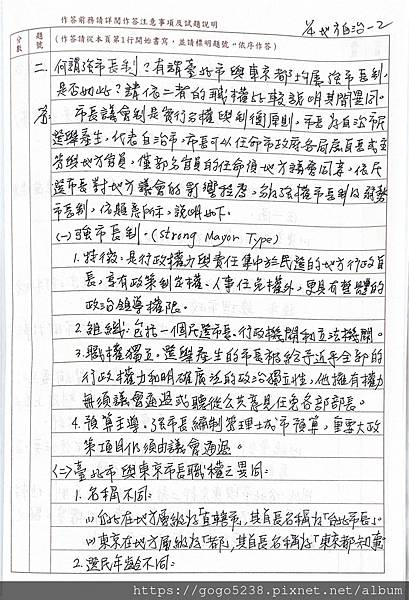 答地方自治-2
作答前務請詳閱作答注意事項及試題說明
分數
題號
(作答請從本頁第1行開始書寫,並請標明題號,依序作答)
二、何謂強市長制?有謂臺北市與東京都均屬強市長制,
是否如此?請依二者的職權比較說明其間異同。
答: 市長議會制是實行各權與制衡原則,市長為自治市民
選舉產生,代表自治市,市長可以任命市政府各局處首長或主
管與地方官員,僅部分官員的任命須地方議會同意,依民
選市長對地方議會的影響程度,分為強權市長制及弱勢
市長制,依題意所示,說明如下。
(一)強市長制:(Strong Mayor Type)
1.特徵:是行政權力與責任集中於民選的地方行政首
長,享有政策制定權、人事任免權外,更具有整體的
政治領導權限。
2.組織:包括一個民選市長、行政機關和立法機關。
3.職權獨立:選舉產生的市長被給予近乎全部的
行政權力和明確廣泛的政治獨立性,他擁有權力
無須議會通過或聽從公共意見任免各部部長。
4.預算主導:強市長編制管理士城市預算,重要大政
策項目仍須由議會通過。
(二)臺北市與東京市長職權之異同:
1.名稱不同:
(1)台北在地方層級為「直轄市」,其首長名稱為「台北市長」。
(2)東京在地方層級為「都」,其首長名稱為「東京都知事
2.選民年齡不同:
https://gogo5238.pixnet.net/album